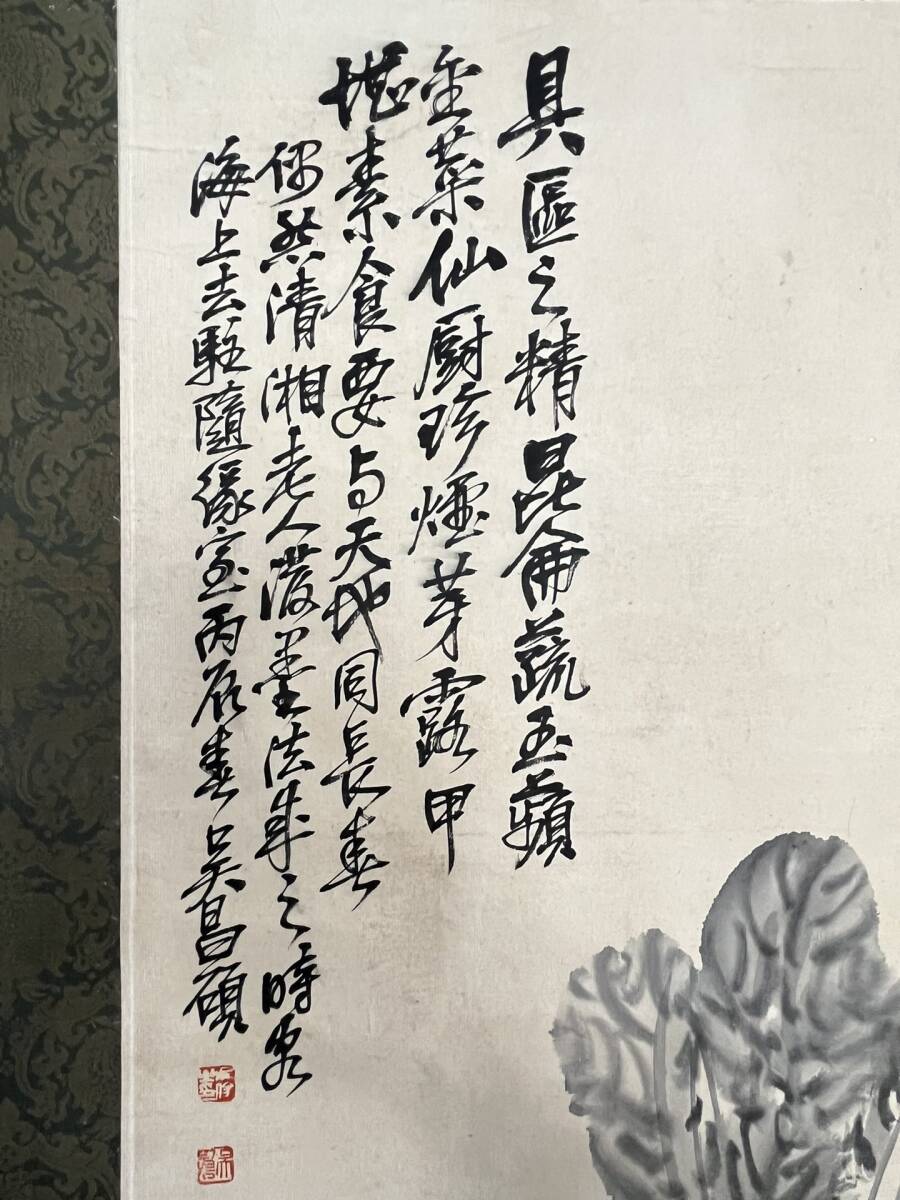 具區之精昆侖蔬玉蘋
金菜仙厨珍煙芽露甲
堪素食要与天地同長春
偶然清湘老人潑墨法成之時客
海上去駐隨緣室丙辰春吳昌碩